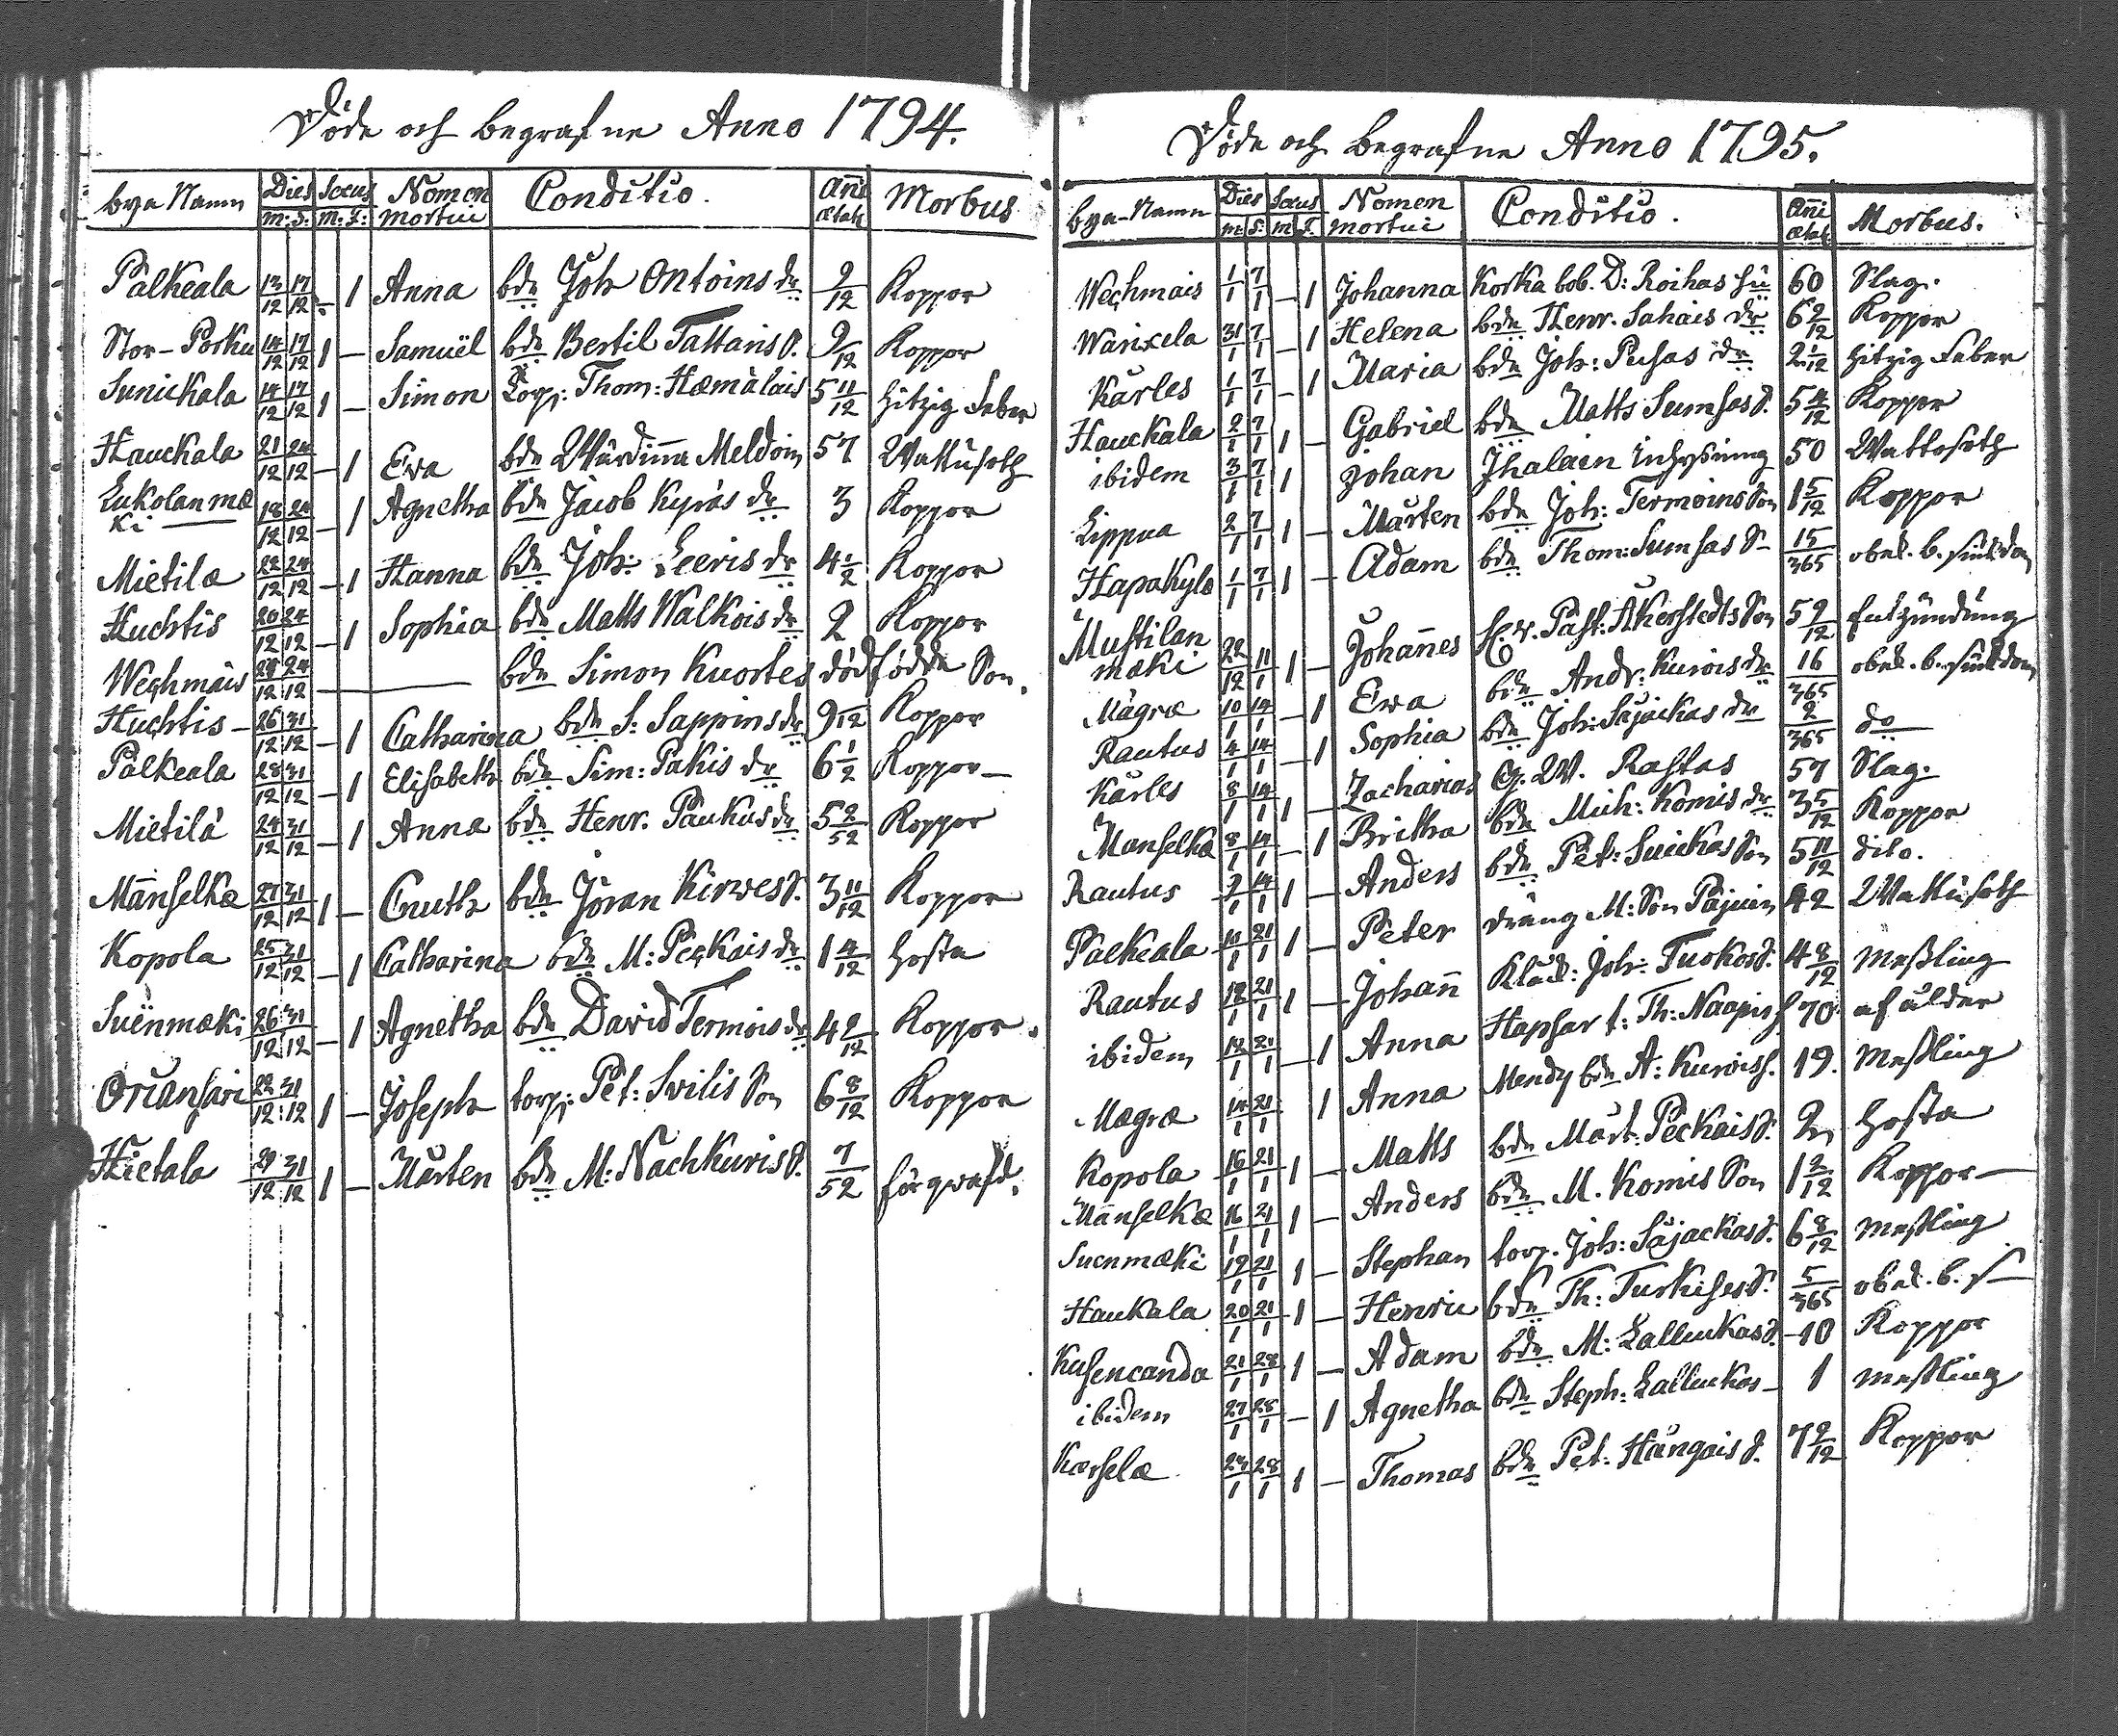 Döde och begrafne Anno 1794.
bya Namn Dies Sexus Nomen Conditio. Añi Morbus
m: S: m: f: mortui ætat:
Palkeala 13/12 17/12 – 1 Anna bdn Joh Ontoins dr 9/12 Koppor
Stor-Porku 14/12 17/12 1 – Samuel bdn Bertil Tattaris S. 9/12 Koppor
Sunickala 14/12 17/12 1 – Simon Torp: Thom: Hæmälais 5 11/12 hitzig Feber
Hauckala 21/12 24/12 – 1 Eva bdn Meldoin 57 Wattusoth
Lukolanmæki 18/12 24/12 – 1 Agnetha bdn Jacob Kyräs dr 3 Koppor
Mietilæ 22/12 24/12 – 1 Hanna bdn Joh: Leeris dr 4 1/2 Koppor
Huchtis 20/12 24/12 – 1 Sophia bdn Matts Walkois dr 2 Koppor
Weghmäis 24/12 24/12 — bdn Simon Kuortes dödfödde Son.
Huchtis – 26/12 31/12 – 1 Catharina bdn S: Sappins dr 9/12 Koppor
Palkeala 28/12 31/12 – 1 Elisabeth bdn Sim: Pakis dr 6 1/2 Koppor –
Mietilä 24/12 31/12 – 1 Anna bdn Henr. Paukus dr 5 2/52 Koppor
Mänselkæ 27/12 31/12 1 – Cnuth bdn Jöran Kirves S. 3 11/12 Koppor
Kopola 25/12 31/12 – 1 Catharina bdn M: Peckais dr 1 4/12 hosta
Suënmæki 26/12 31/12 – 1 Agnetha bdn David Termois dr 4 2/12 Koppor.
Oriansari 22/12 31/12 1 – Joseph torp: Pet: Svilis Son 6 8/12 Koppor
Hietala 29/12 31/12 1 – Mårten bdn M: Nachkuris S. 7/52 förqwafd.
Döde och begrafne Anno 1795.
bya-Namn Dies Sexus Nomen Conditio. Añi Morbus.
m: S: m f. mortui ætat:
Weghmais 1/1 7/1 – 1 Johanna Korka bob. D: Roihas hu 60 Slag.
Warixela 31/1 7/1 – 1 Helena bdn Henr. Sahais dr 6 2/12 Koppor
Kärles 1/1 7/1 – 1 Maria bdn Joh: Pusas dr 2 1/12 hitzig Feber
Hauckala 2/1 7/1 1 – Gabriel bdn Matts Sumsas S. 5 4/12 Koppor
ibidem 3/1 7/1 1 Johan Jhalain Inhysning 50 Wattosoth
Lippua 2/1 7/1 1 – Mårten bdn Joh: Termoins Son 1 5/12 Koppor
Hapakylæ 1/1 7/1 1 – Adam bdn Thom: Sumsas S– 15/365 obek. b. siukdom
Mustilanmæki 22/12 11/1 1 – Johañes Past: Åkerstedts Son 5 9/12 Entzündung
Mägræ 10/1 14/1 – 1 Ewa bdn Andr: Kurvis dr 16/365 obek. b. siukdom
Rautus 4/1 14/1 – 1 Sophia bdn Joh: Säjäckas dr 2/365 do
Kärles 8/1 14/1 1 – Zacharias G. W. Rastas 57 Slag.
Manselkæ 8/1 14/1 – 1 Britha bdn Mich: Komis dr 3 5/12 Koppor
Rautus 9/1 14/1 1 – Anders bdn Pet: Suickas Son 5 11/12 dito.
Palkeala 10/1 21/1 1 – Peter dräng M: Son Päjuin 42 Wattusoth
Rautus 12/1 21/1 1 – Johañ Joh: Turkos S. 4 8/12 Meßling
ibidem 12/1 21/1 – 1 Anna Th: Naapis 70 af ålder
Mægræ 14/1 21/1 1 Anna bdn A: Kurvis 19. Meßling
Kopola 16/1 21/1 1 – Matts bdn Mårt: Peckais S. 2 hosta
Mänselkæ 16/1 21/1 1 – Anders bdn M. Komis Son 1 2/12 Koppor –
Suenmæki 19/1 21/1 1 – Stephan torp. Joh: Säjäckas S. 6 8/12 Meßling
Haukala 20/1 21/1 1 – Henric bdn Th: Turkises S. 5/365 obek. b. s–
Kusencanda 21/1 28/1 1 – Adam bdn M: Lallukas S. 10 Koppor
ibidem 27/1 28/1 – 1 Agnetha bdn Steph: Lallukas – 1 Meßling
Kærselæ 23/1 28/1 1 – Thomas bdn Pet: Hängais S. 7 2/12 Koppor